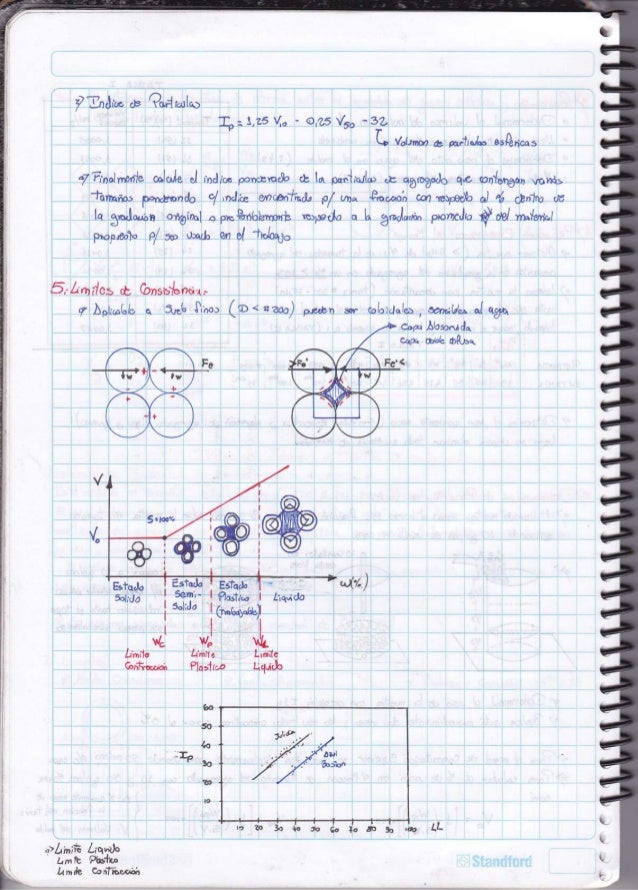 Indice de Particulas
Ip = 1,25 V10 - 0,25 V50 - 32
Volumen de particulas esféricas
Finalmente calcule el indice ponderado de la particulas de agregado que contengan varios
tamaños ponderando c/ indice encontrado p/ una fracción con respecto al % dentro de
la gradación original o preferiblemente respecto a la gradación promedio del material
propuesto p/ ser usado en el trabajo
5. Limites de Consistencia:
Aplicable a Suelo finos (D < #200) pueden ser coloidales, sensibles al agua
Capa Absorvida
Capa doble difusa
Fe
Fe' Fe'
w w w w
V
S=100%
Vo
w(%)
Estado Estado Estado Liquido
Solido Semi- Plastico
Solido (trabajable)
Wc Wp WL
Limite Limite Limite
Contracción Plastico Liquido
60
50
40
30
20
10
Ip
Azul
10 20 30 40 50 60 70 80 90 100 LL
a) Limite Liquido
Limite Plastico
Limite Contracción
Standford